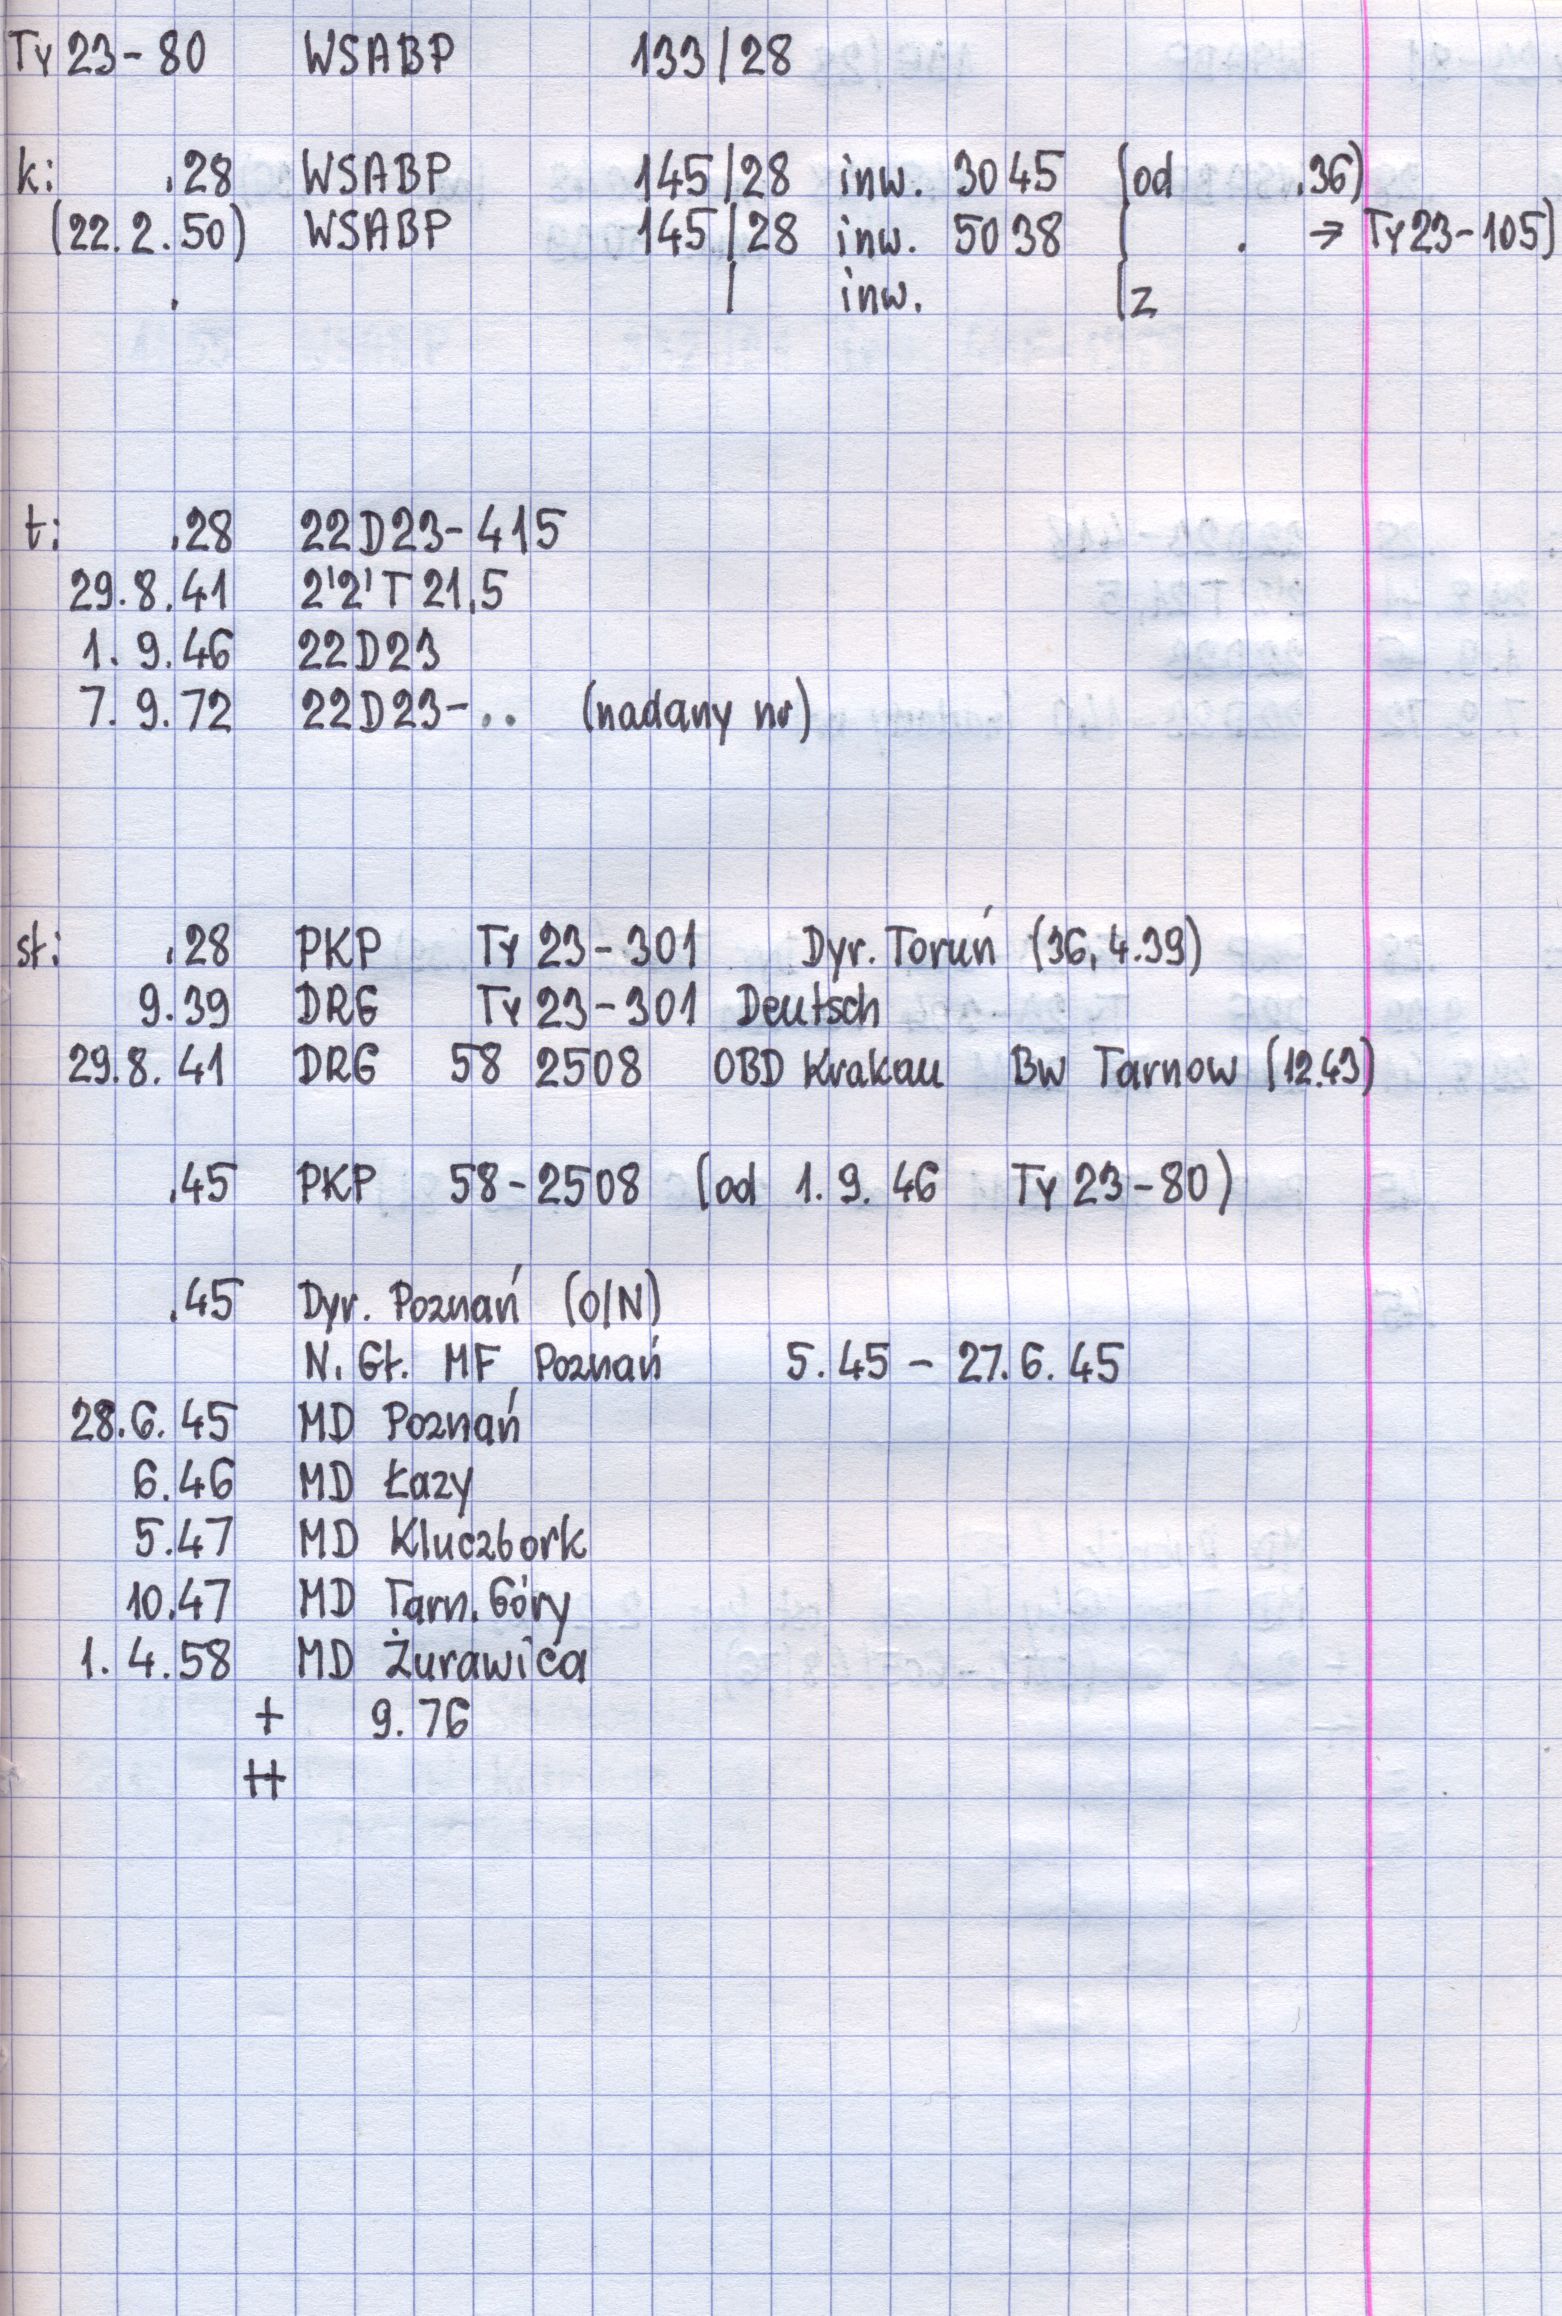 Ty 23-80 WSABP 133/28
k: .28 WSABP 145/28 inw. 3045 (od .36)
(22.2.50) WSABP 145/28 inw. 5038 ( . → Ty23-105)
. / inw. (z
t: .28 22D23-415
29.8.41 2'2'T 21,5
1.9.46 22D23
7.9.72 22D23-.. (nadany nr)
st: .28 PKP Ty 23-301 Dyr. Toruń (36, 4.39)
9.39 DRG Ty 23-301 Deutsch
29.8.41 DRG 58 2508 OBD Krakau Bw Tarnow (12.43)
.45 PKP 58-2508 (od 1.9.46 Ty 23-80)
.45 Dyr. Poznań (O/N)
N. Gł. MF Poznań 5.45 - 27.6.45
28.6.45 MD Poznań
6.46 MD Łazy
5.47 MD Kluczbork
10.47 MD Tarn. Góry
1.4.58 MD Żurawica
+ 9.76
++